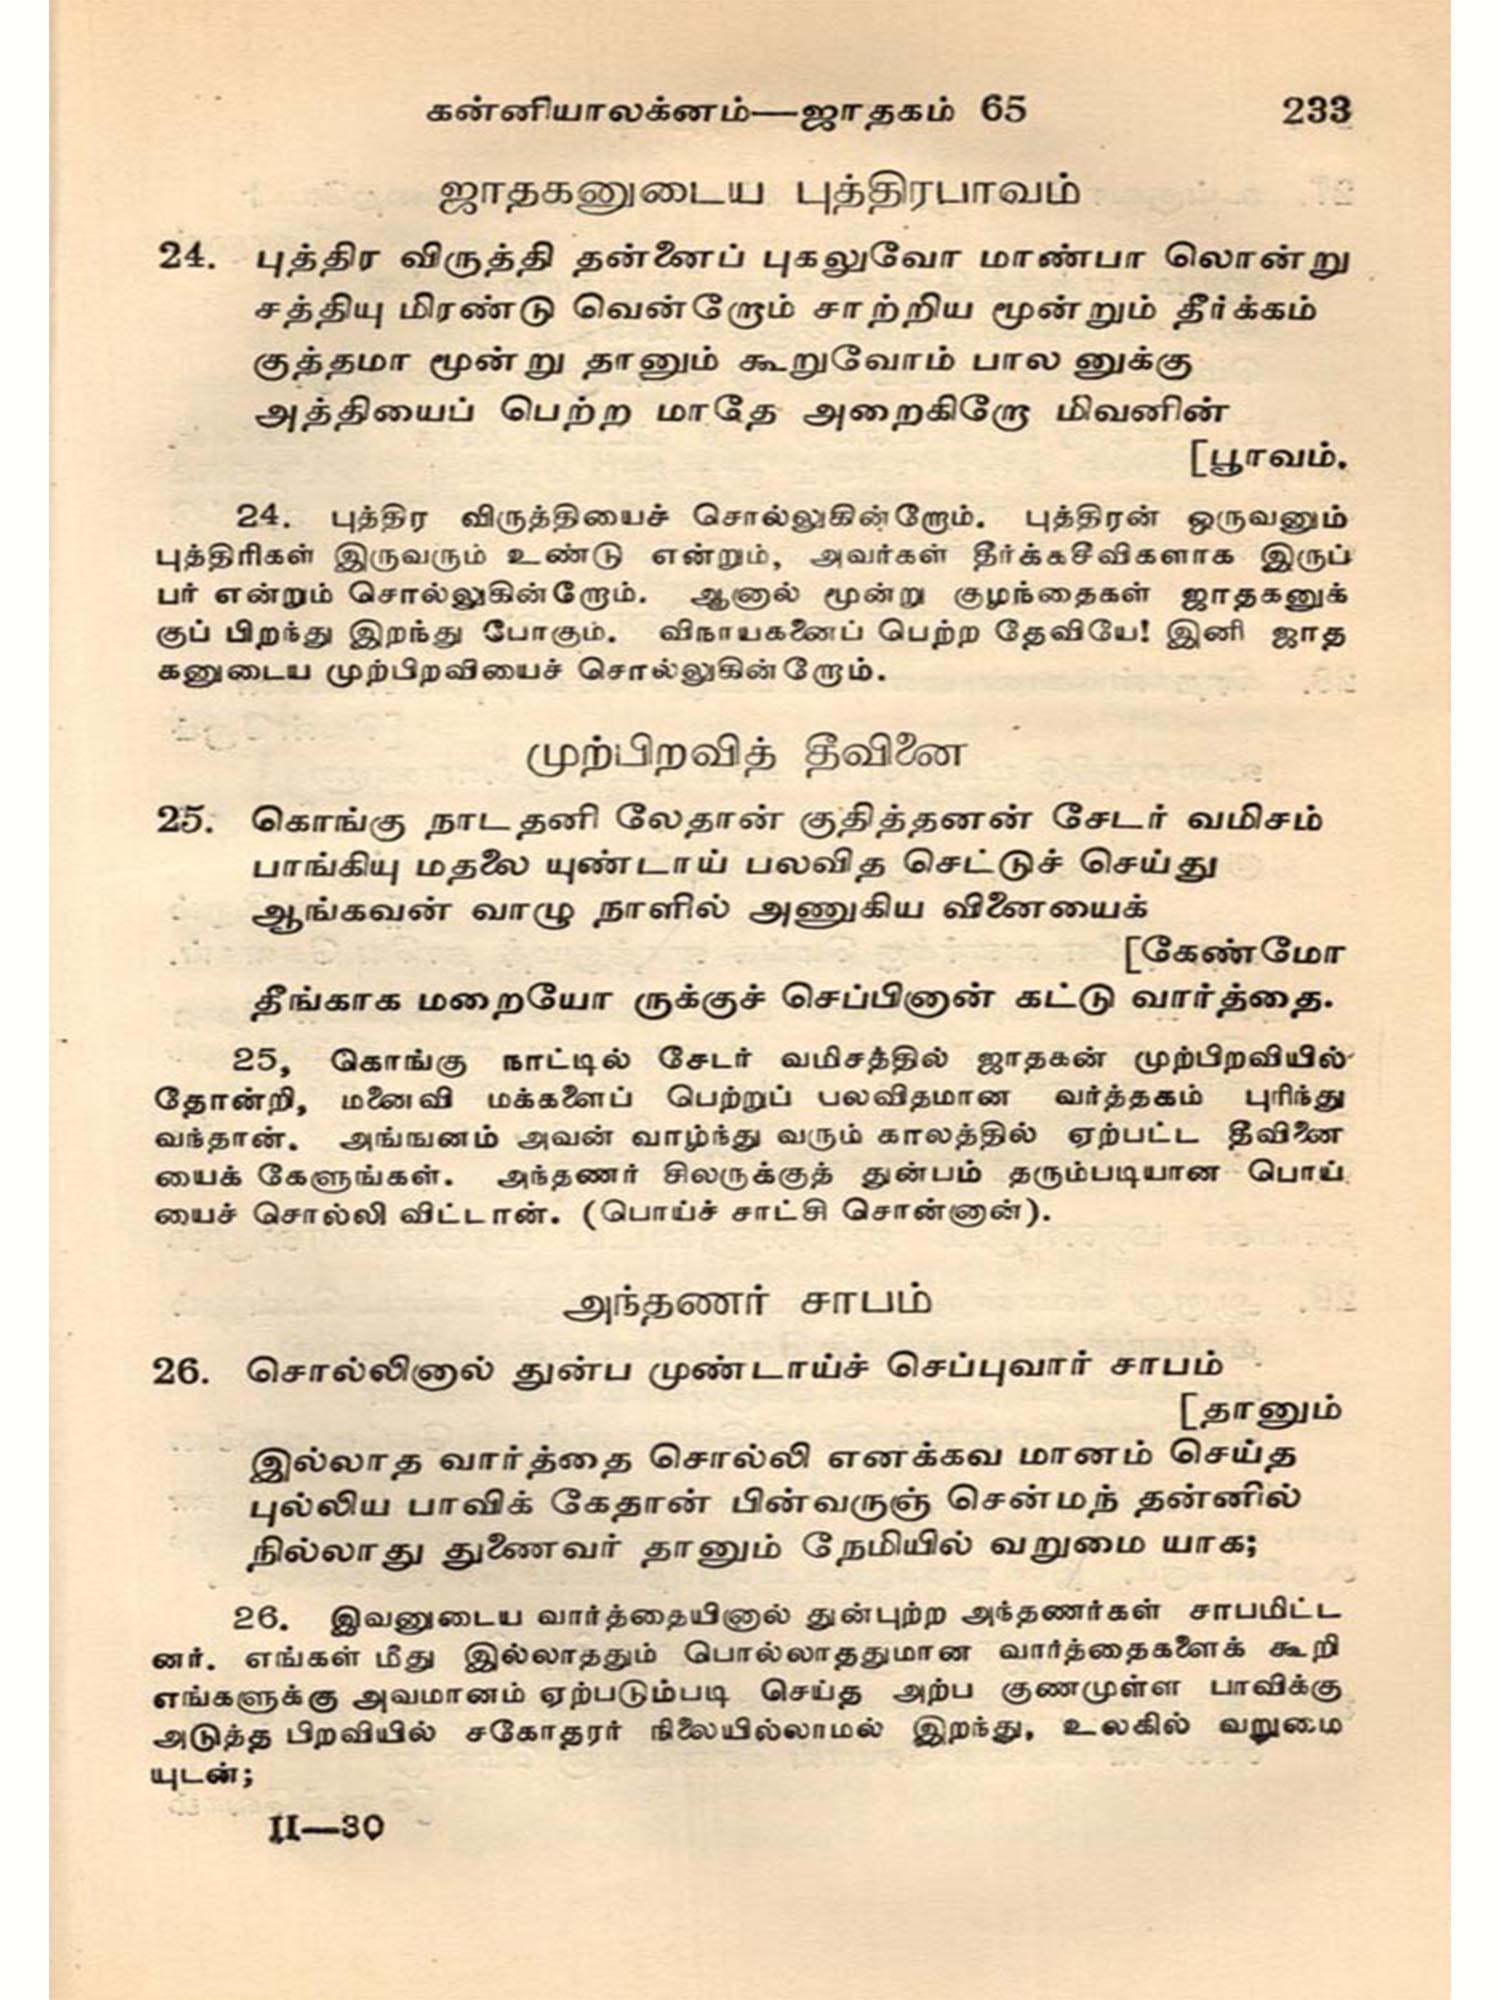 கன்னியாலக்னம்—ஜாதகம் 65 233
ஜாதகனுடைய புத்திரபாவம்
24. புத்திர விருத்தி தன்னைப் புகலுவோ மாண்பா லொன்று
சத்தியு மிரண்டு வென்றோம் சாற்றிய மூன்றும் தீர்க்கம்
குத்தமா மூன்று தானும் கூறுவோம் பால னுக்கு
அத்தியைப் பெற்ற மாதே அறைகிறோ மிவனின்
[பூர்வம்.
24. புத்திர விருத்தியைச் சொல்லுகின்றோம். புத்திரன் ஒருவனும்
புத்திரிகள் இருவரும் உண்டு என்றும், அவர்கள் தீர்க்கசீவிகளாக இருப்
பர் என்றும் சொல்லுகின்றோம். ஆனால் மூன்று குழந்தைகள் ஜாதகனுக்
குப் பிறந்து இறந்து போகும். விநாயகனைப் பெற்ற தேவியே! இனி ஜாத
கனுடைய முற்பிறவியைச் சொல்லுகின்றோம்.
முற்பிறவித் தீவினை
25. கொங்கு நாடதனி லேதான் குதித்தனன் சேடர் வமிசம்
பாங்கியு மதலை யுண்டாய் பலவித செட்டுச் செய்து
ஆங்கவன் வாழு நாளில் அணுகிய வினையைக்
[கேண்மோ
தீங்காக மறையோ ருக்குச் செப்பினான் கட்டு வார்த்தை.
25, கொங்கு நாட்டில் சேடர் வமிசத்தில் ஜாதகன் முற்பிறவியில்
தோன்றி, மனைவி மக்களைப் பெற்றுப் பலவிதமான வர்த்தகம் புரிந்து
வந்தான். அங்ஙனம் அவன் வாழ்ந்து வரும் காலத்தில் ஏற்பட்ட தீவினை
யைக் கேளுங்கள். அந்தணர் சிலருக்குத் துன்பம் தரும்படியான பொய்
யைச் சொல்லி விட்டான். (பொய்ச் சாட்சி சொன்னான்).
அந்தணர் சாபம்
26. சொல்லினால் துன்ப முண்டாய்ச் செப்புவார் சாபம்
[தானும்
இல்லாத வார்த்தை சொல்லி எனக்கவ மானம் செய்த
புல்லிய பாவிக் கேதான் பின்வருஞ் சென்மந் தன்னில்
நில்லாது துணைவர் தானும் நேமியில் வறுமை யாக;
26. இவனுடைய வார்த்தையினால் துன்புற்ற அந்தணர்கள் சாபமிட்ட
னர். எங்கள் மீது இல்லாததும் பொல்லாததுமான வார்த்தைகளைக் கூறி
எங்களுக்கு அவமானம் ஏற்படும்படி செய்த அற்ப குணமுள்ள பாவிக்கு
அடுத்த பிறவியில் சகோதரர் நிலையில்லாமல் இறந்து, உலகில் வறுமை
யுடன்;
II—30